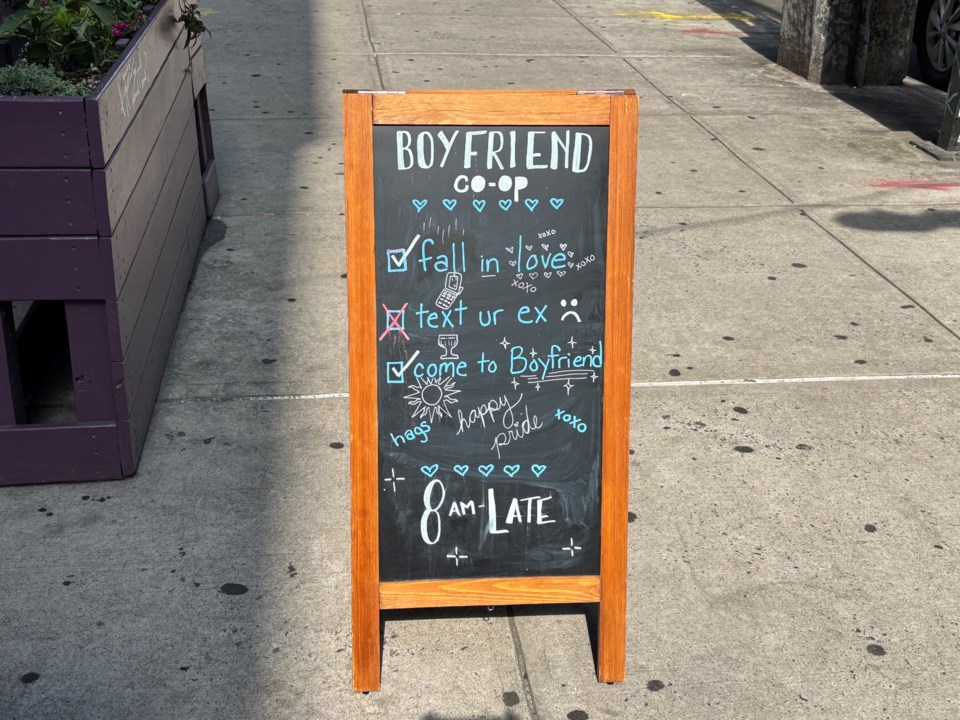 BOYFRIEND
CO-OP
xoxo
fall in love
xoxo
xoxo
text ur ex
come to Boyfriend
happy
pride
hags
xoxo
8 AM-LATE